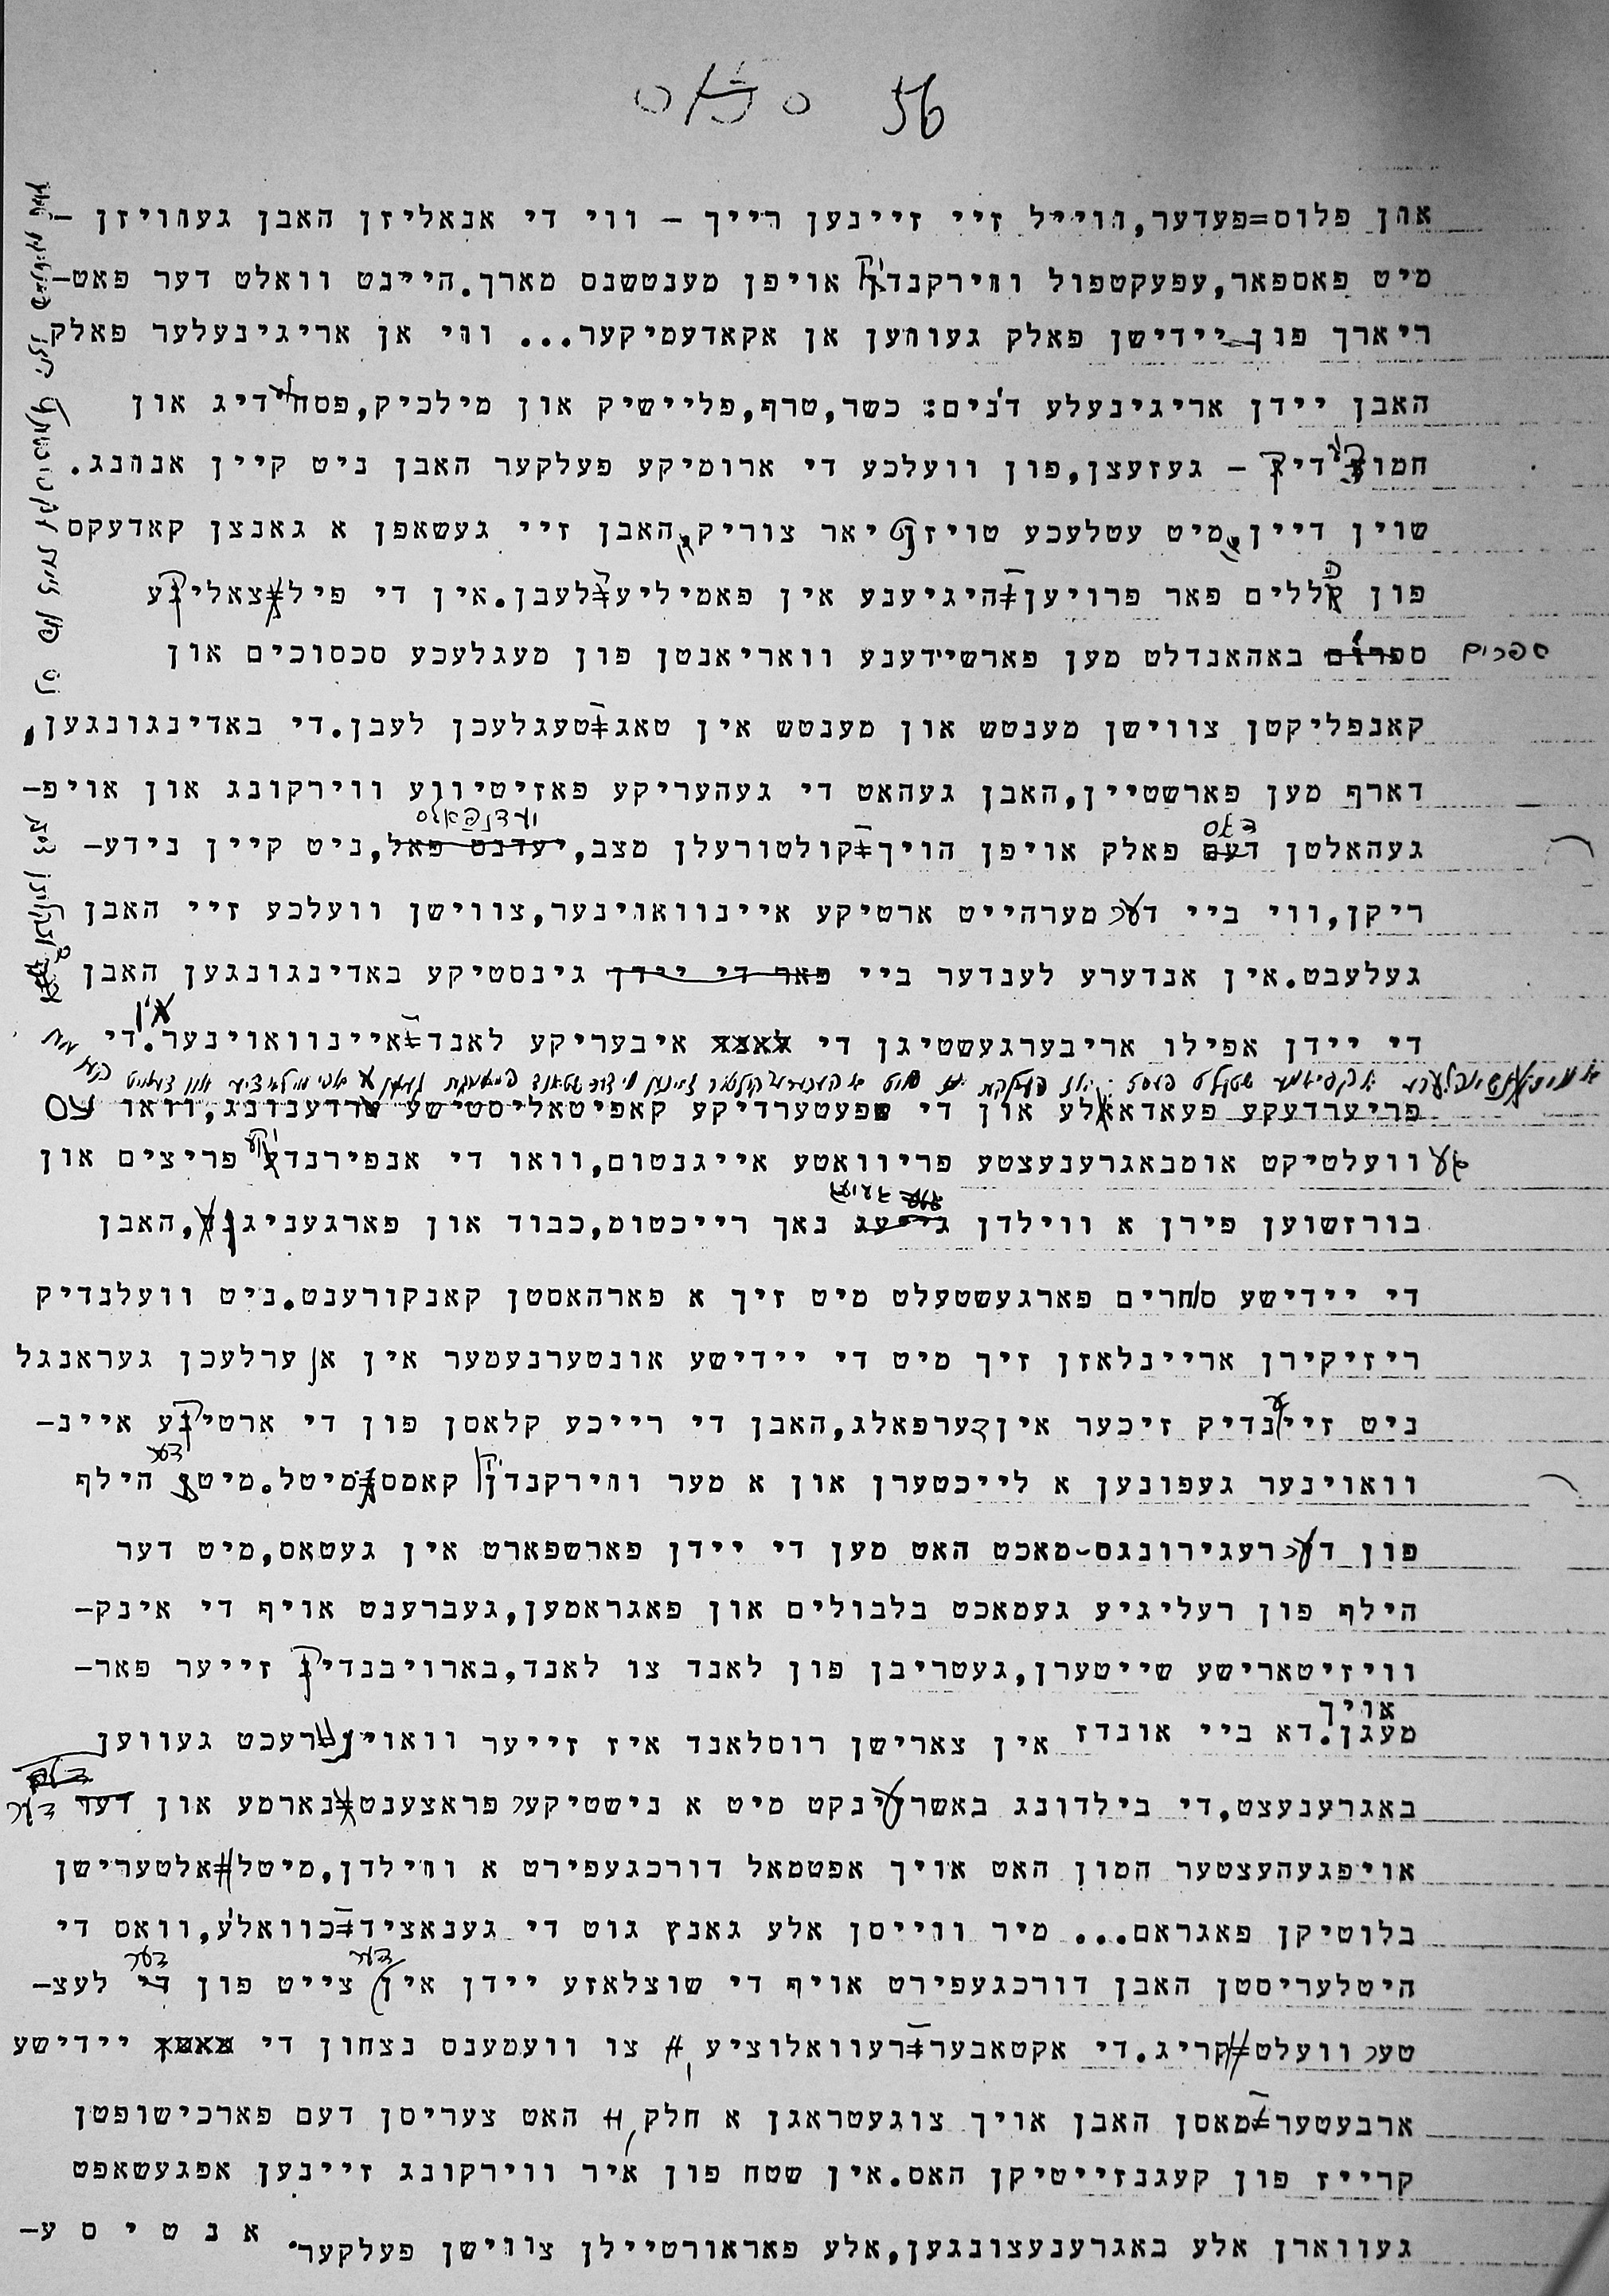 56
און פלוס=פעדער,ווייל זיי זיינען רייך – ווי די אנאליזן האבן געוויזן –
מיט פאספאר,עפעקטפול ווירקנדיק אויפן מענטשנס מארך.היינט וואלט דער פאט–
ריארך פון יידישן פאלק געווען אן אקאדעמיקער... ווי אן אריגינעלער פאלק
האבן יידן אריגינעלע דינים: כשר,טרף,פליישיק און מילכיק,פסחדיג און
חמוצדיק – געזעצן,פון וועלכע די ארומיקע פעלקער האבן ניט קיין אנונג.
שוין דיין,מיט עטלעכע טויזנט יאר צוריק,האבן זיי געשאפן א גאנצן קאדעקס
פון כללים פאר פרויען–היגיענע אין פאמיליע–לעבן.אין די פילצאליקע
ספרים באהאנדלט מען פארשיידענע וואריאנטן פון מעגלעכע סכסוכים און
קאנפליקטן צווישן מענטש און מענטש אין טאג–טעגלעכן לעבן.די באדינגונגען,
דארף מען פארשטיין,האבן געהאט די געהעריקע פאזיטיווע ווירקונג און אויפ–
געהאלטן דאס פאלק אויפן הויך–קולטורעלן מצב,יעדנפאלס,ניט קיין נידע–
ריקן,ווי ביי דער מערהייט ארטיקע איינוואוינער,צווישן וועלכע זיי האבן
געלעבט.אין אנדערע לענדער ביי גינסטיקע באדינגונגען האבן
די יידן אפילו אריבערגעשטיגן די איבעריקע לאנד–איינוואוינער.אין די
פריערדעקע פעאדאלע און די שפעטערדיקע קאפיטאליסטישע ארדענונג,וואו עס
געוועלטיקט אומבאגרענעצטע פריוואטע אייגנטום,וואו די אנפירנדיקע פריצים און
בורזשוען פירן א ווילדן געיעג נאך רייכטום,כבוד און פארגעניגן,האבן
די יידישע סוחרים פארגעשטעלט מיט זיך א פארהאסטן קאנקורענט.ניט וועלנדיק
ריזיקירן אריינלאזן זיך מיט די יידישע אונטערנעמער אין אן ערלעכן געראנגל
ניט זייענדיק זיכער אין דערפאלג,האבן די רייכע קלאסן פון די ארטיקע איינ–
וואוינער געפונען א לייכטערן און א מער ווירקנדיקן קאמפסמיטל.מיט דער הילף
פון דער רעגירונגס-מאכט האט מען די יידן פארשפארט אין געטאס,מיט דער
הילף פון רעליגיע געמאכט בלבולים און פאגראמען,געברענט אויף די אינק–
וויזיטארישע שייטערן,געטריבן פון לאנד צו לאנד,בארויבנדיק זייער פאר–
מעגן.אויך דא ביי אונדז אין צארישן רוסלאנד איז זייער וואוינרעכט געווען
באגרענעצט,די בילדונג באשרענקט מיט א נישטיקער פראצענטנארמע און דער
אויפגעהעצטער המון האט אויך אפטמאל דורכגעפירט א ווילדן,מיטלאלטערישן
בלוטיקן פאגראם... מיר ווייסן אלע גאנץ גוט די גענאציד–כוואליע,וואס די
היטלעריסטן האבן דורכגעפירט אויף די שוצלאזע יידן אין דער צייט פון דער לעצ–
טער וועלטקריג.די אקטאבער–רעוואלוציע, צו וועמענס נצחון די יידישע
ארבעטער–מאסן האבן אויך צוגעטראגן א חלק, האט צעריסן דעם פארכישופטן
קרייז פון קעגנזייטיקן האס.אין שטח פון איר ווירקונג זיינען אפגעשאפט
געווארן אלע באגרענעצונגען,אלע פאראורטיילן צווישן פעלקער. א נ ט י ס ע–